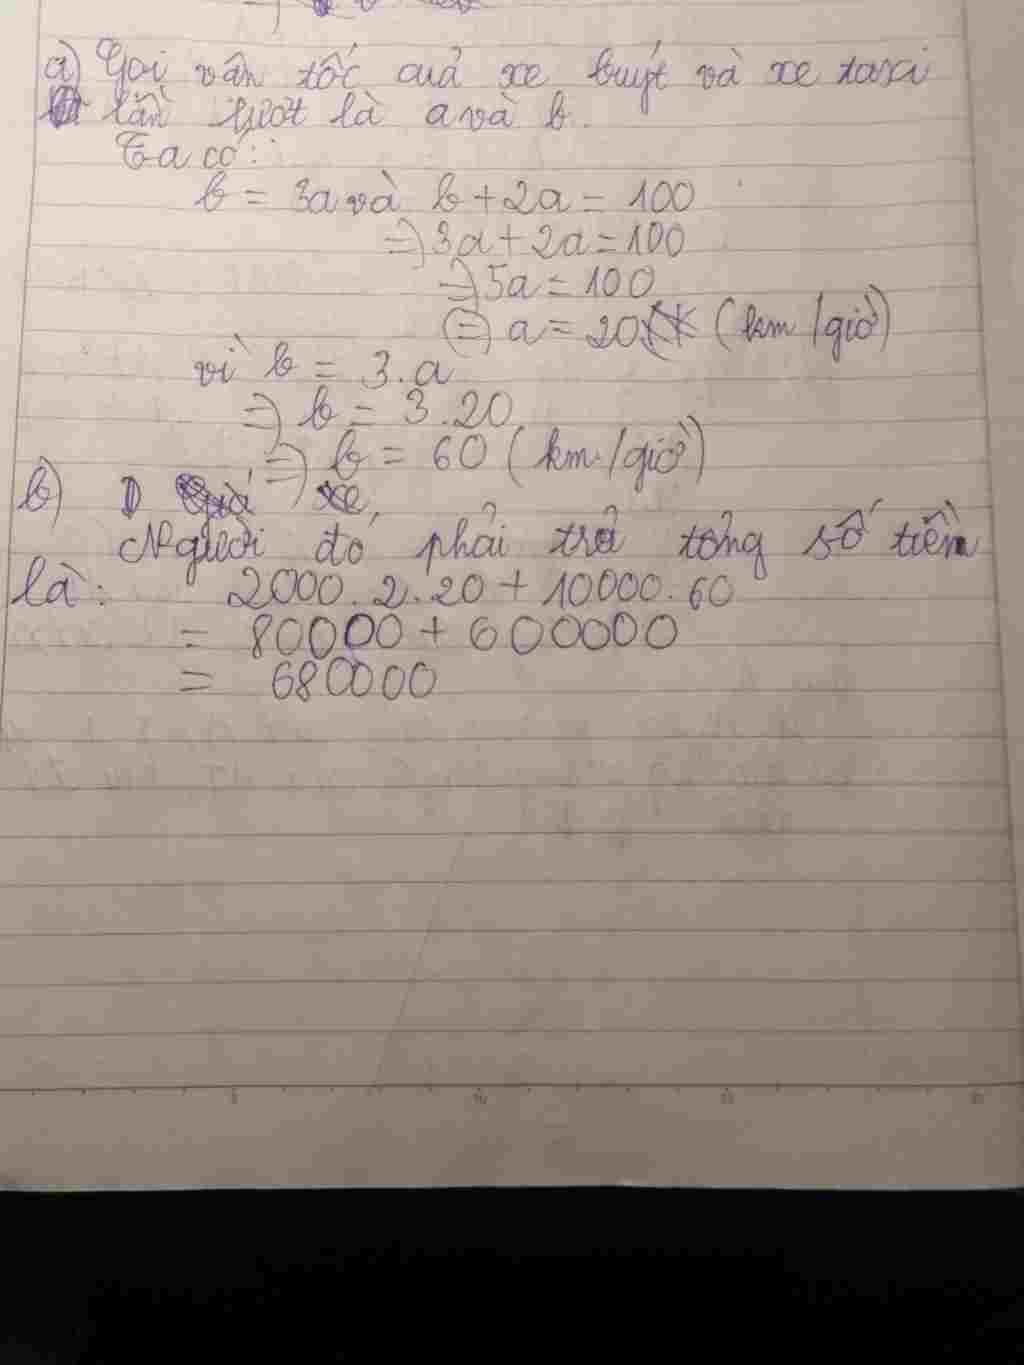 a) Gọi vân tốc cuả xe buýt và xe taxi
lần lượt là a và b.
Ta có:
b = 3a và b + 2a = 100
=> 3a + 2a = 100
=> 5a = 100
(=) a = 20 (km/giờ)
vì b = 3.a
=> b = 3.20
=> b = 60 (km/giờ)
b)
Người đó phải trả tổng số tiền
là: 2000.2.20 + 10000.60
= 80000 + 600000
= 680000
5 10 15 20